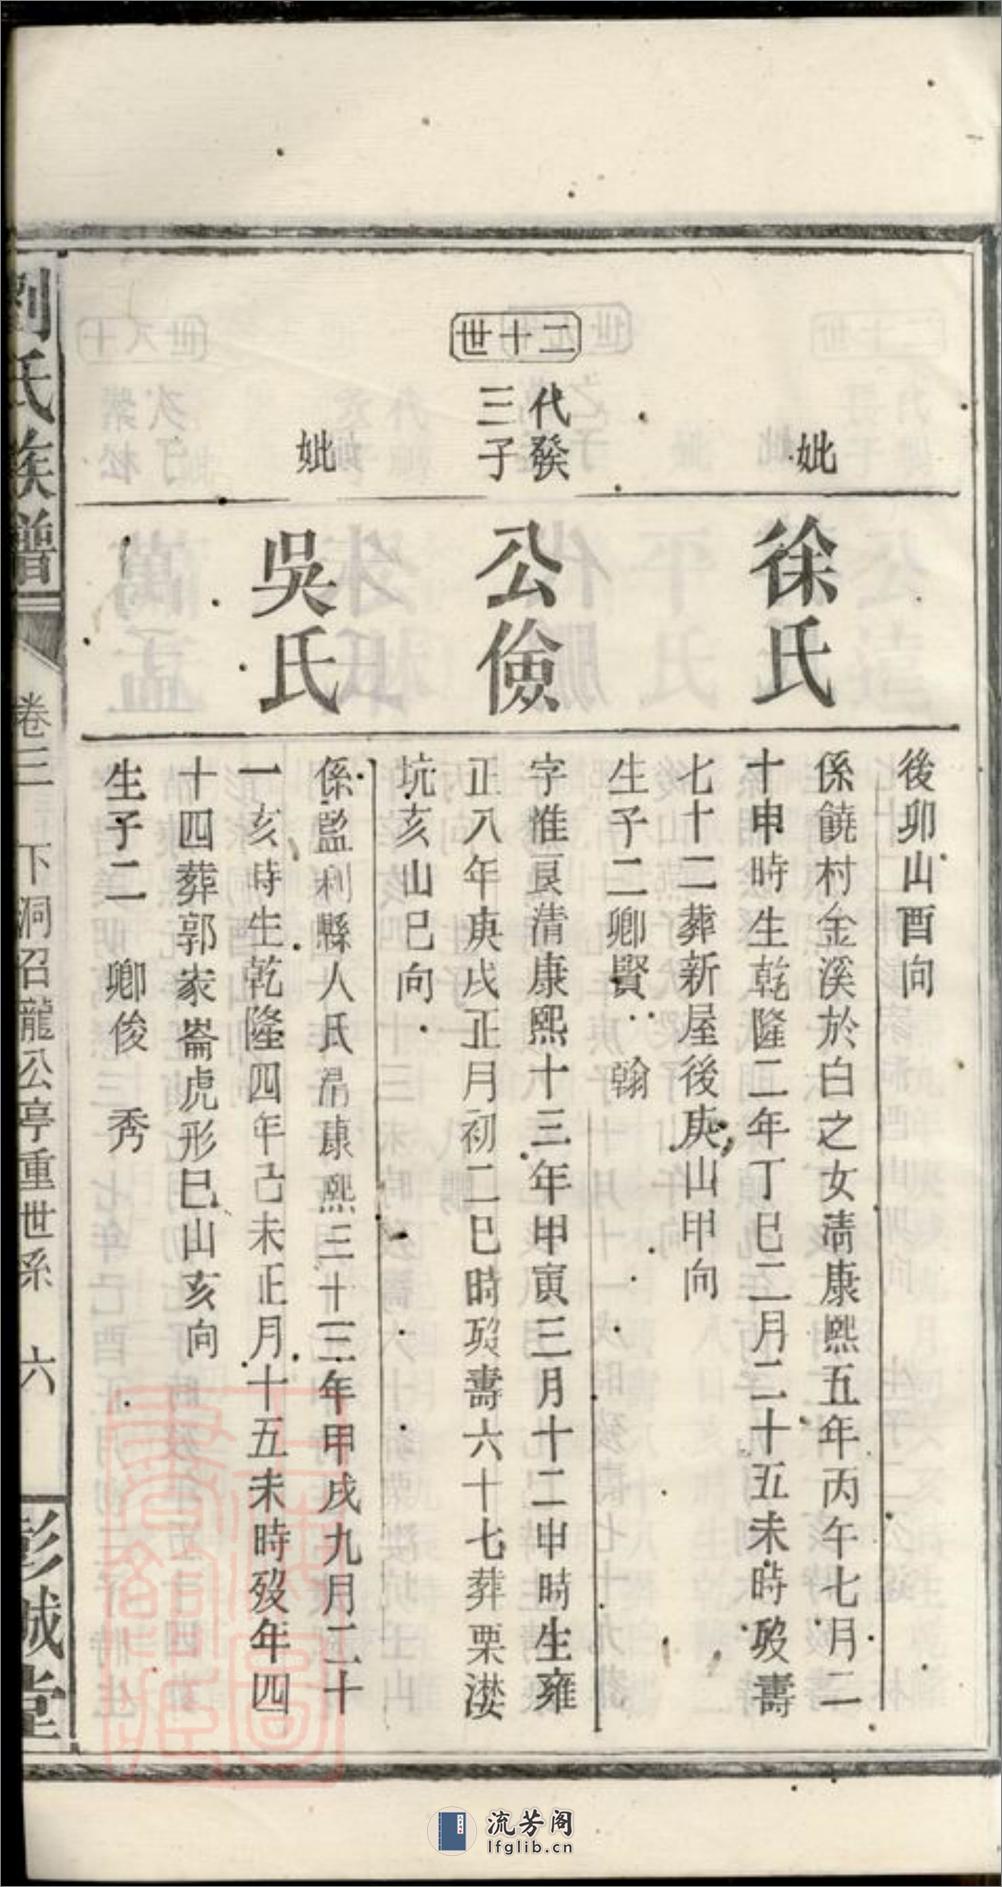 後卯山酉向
妣
徐氏
係饒村金溪於白之女淸康熙五年丙午七月二
十申時生乾隆二年丁巳二月二十五未時歿壽
七十二葬新屋後庚山甲向
生子二卿賢 翰
二十世
代發
三子
公儉
字惟良清康熙十三年甲寅三月十二申時生雍
正八年庚戌正月初二巳時歿壽六十七葬栗㘰
坑亥山巳向
妣
吳氏
係監利縣人氏淸康熙三十三年甲戌九月二十
一亥時生乾隆四年己未正月十五未時歿年四
十四葬郭家崙虎形巳山亥向
生子二 卿俊 秀
劉氏族譜
卷三 下洞召龍公亭重世系 六
彭城堂
流芳阁
lfglib.cn